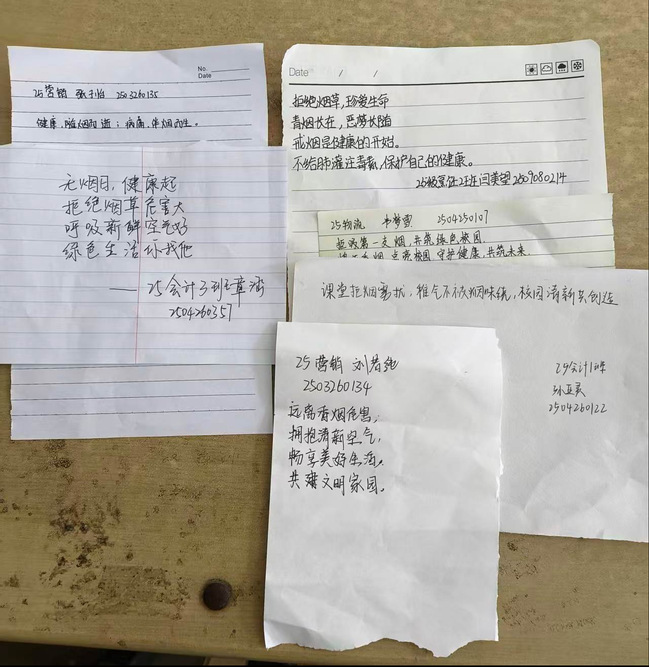 No.
Date
25营销 张子怡 2503260135
健康,随烟而逝;病痛,伴烟而生。
无烟日,健康起
拒绝烟草危害大
呼吸新鲜空气好
绿色生活你我他
——25会计3班
2504260357
Date / /
拒绝烟草,珍爱生命
青烟长在,恶梦长随
戒烟是健康的开始。
不给肺灌注毒素,保护自己的健康。
25级烹饪2班闫美望 2509080214
25物流 梦雪 2504250107
拒吸第一支烟,共筑绿色校园。
守护健康,共筑未来。
课堂拒烟雾扰,稚气不染烟味绕,校园清新共创造
25会计1班
孙亚灵
2504260122
25营销 刘若绝
2503260134
远离香烟危害,
拥抱清新空气,
畅享美好生活,
共建文明家园。